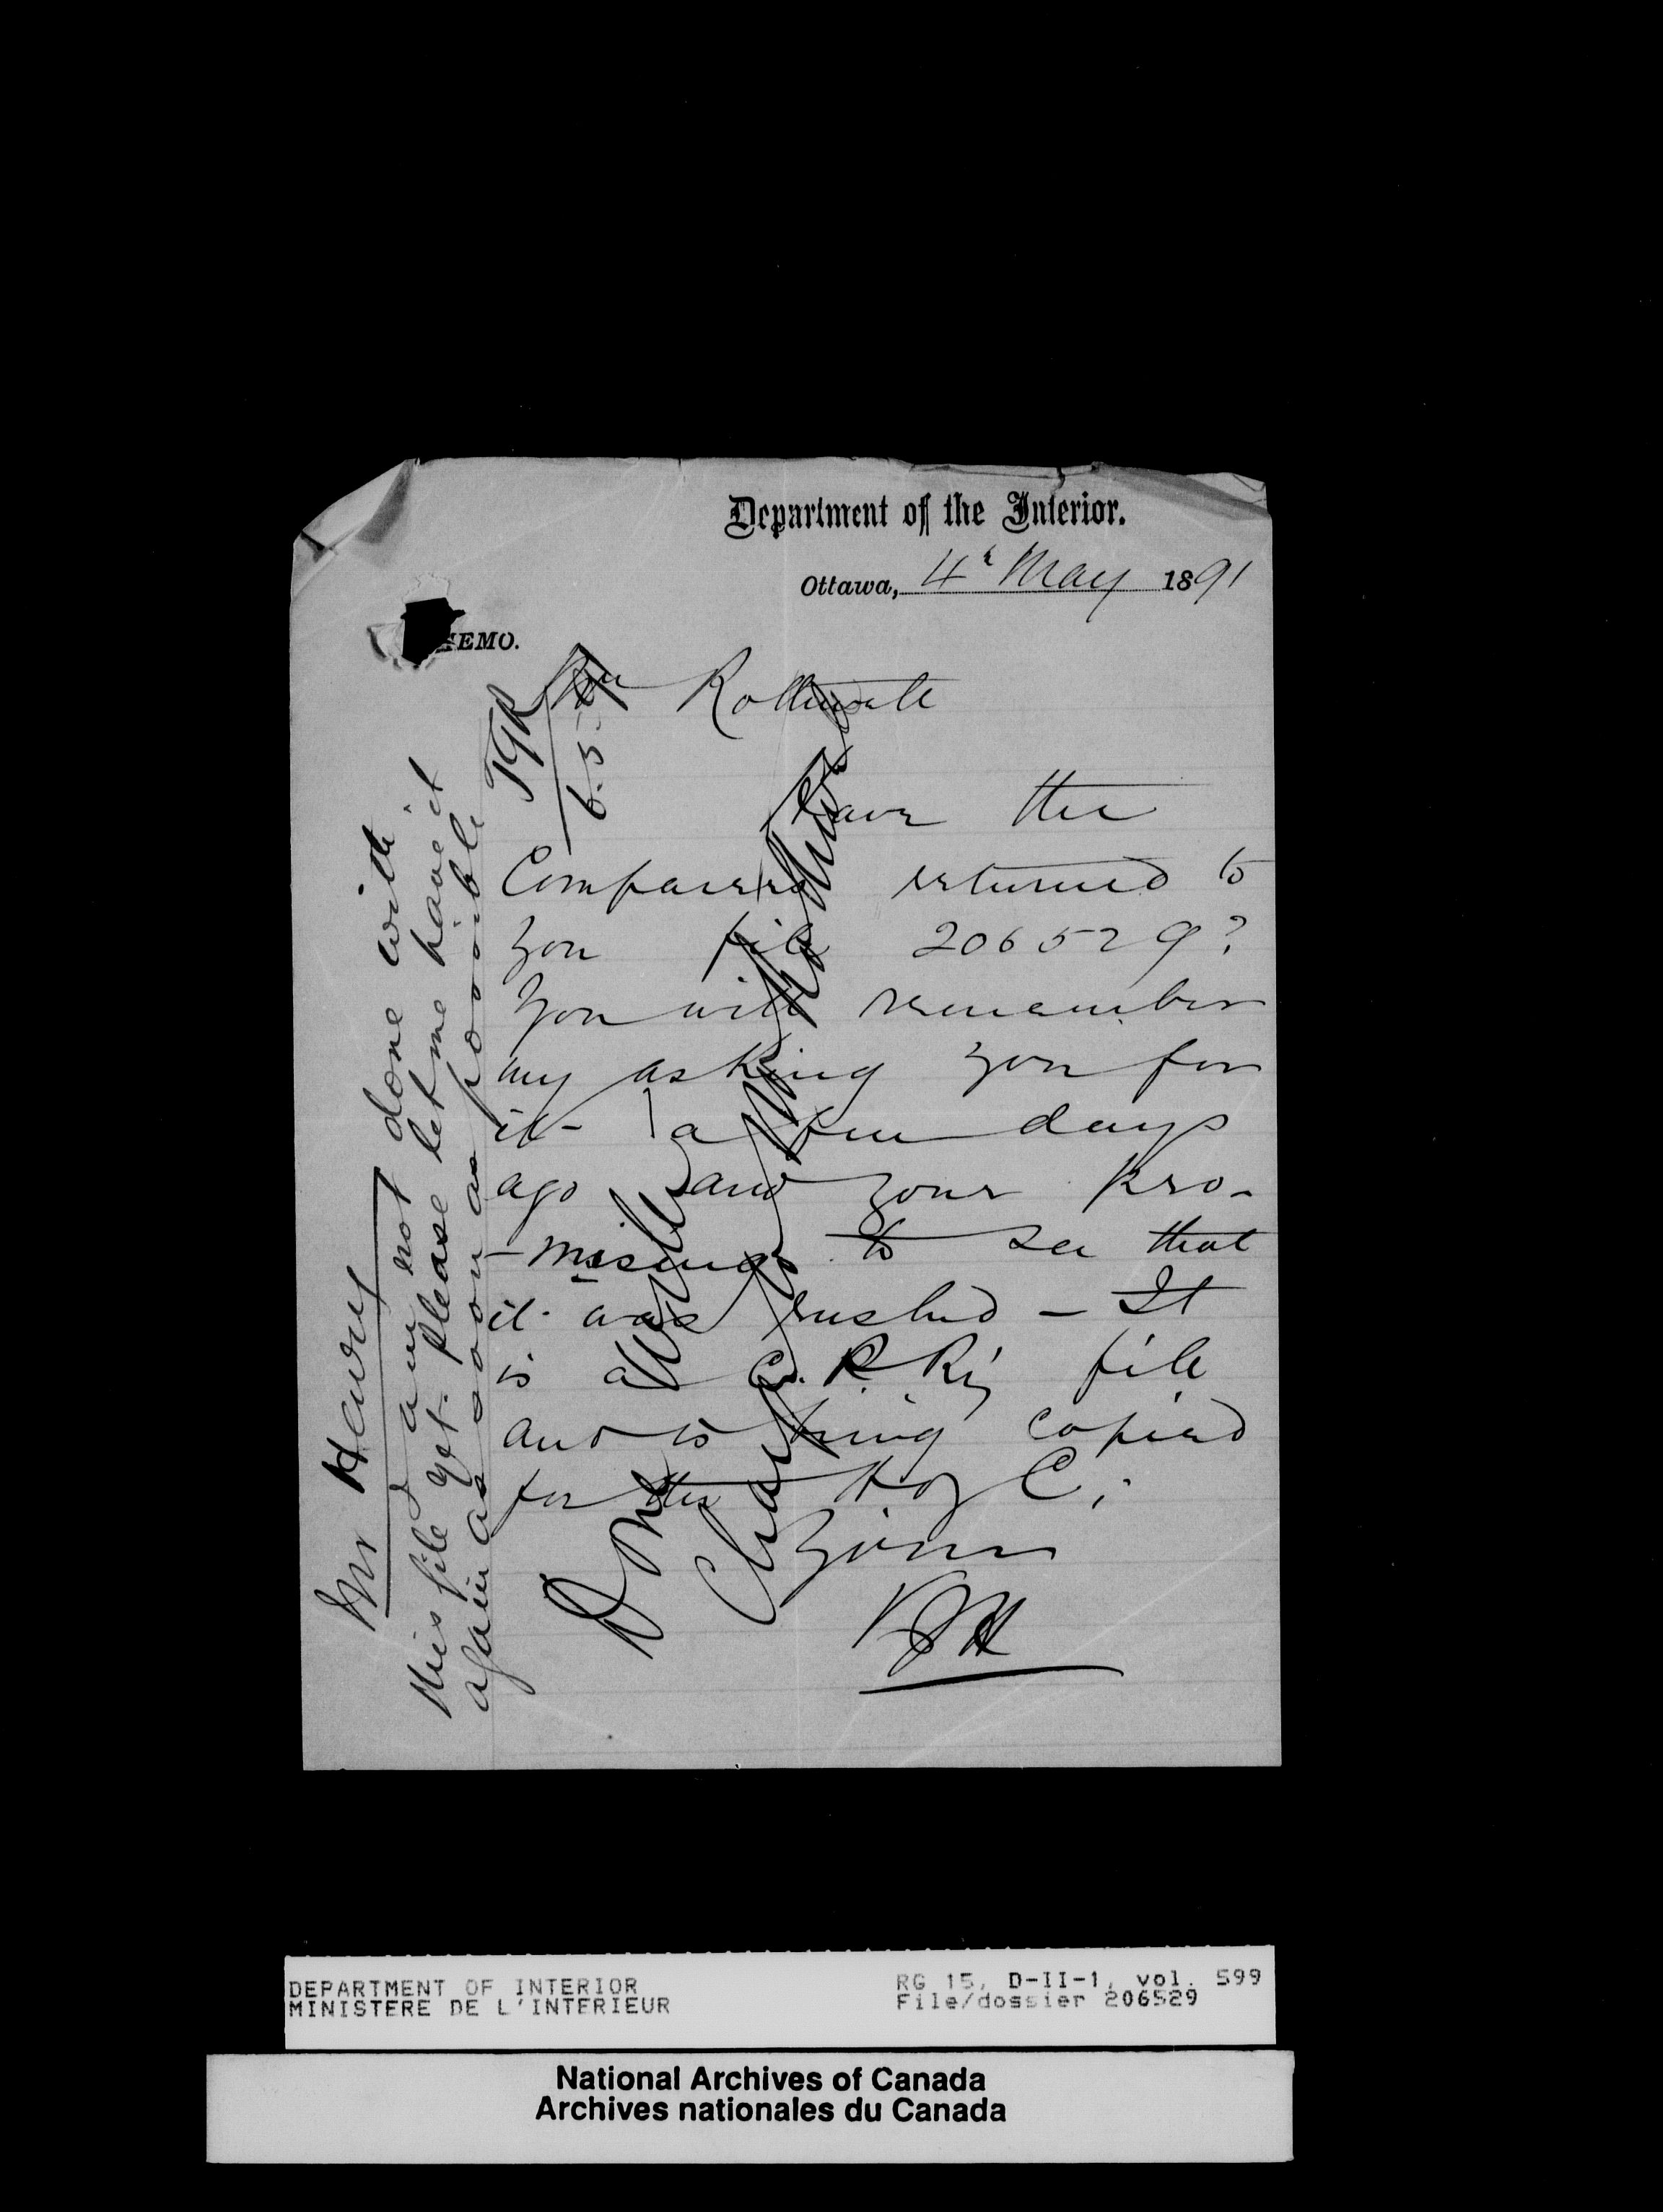 Department of the Interior.
Ottawa, 4th May 1891
MEMO.
Mr Rothwell
Have the
Comparers returned to
you file 206529?
You will remember
my asking you for
it - a few days
ago and your pro-
-mising to see that
it was rushed - It
is a C.P. Ry file
and is being copied
for the H of C.
Yours
Mr Henry
I am not done with
this file yet. Please let me have it
again as soon as possible
TGR
6.5.91
Done
DEPARTMENT OF INTERIOR
MINISTERE DE L'INTERIEUR
RG 15, D-II-1, vol. 599
File/dossier 206529
National Archives of Canada
Archives nationales du Canada